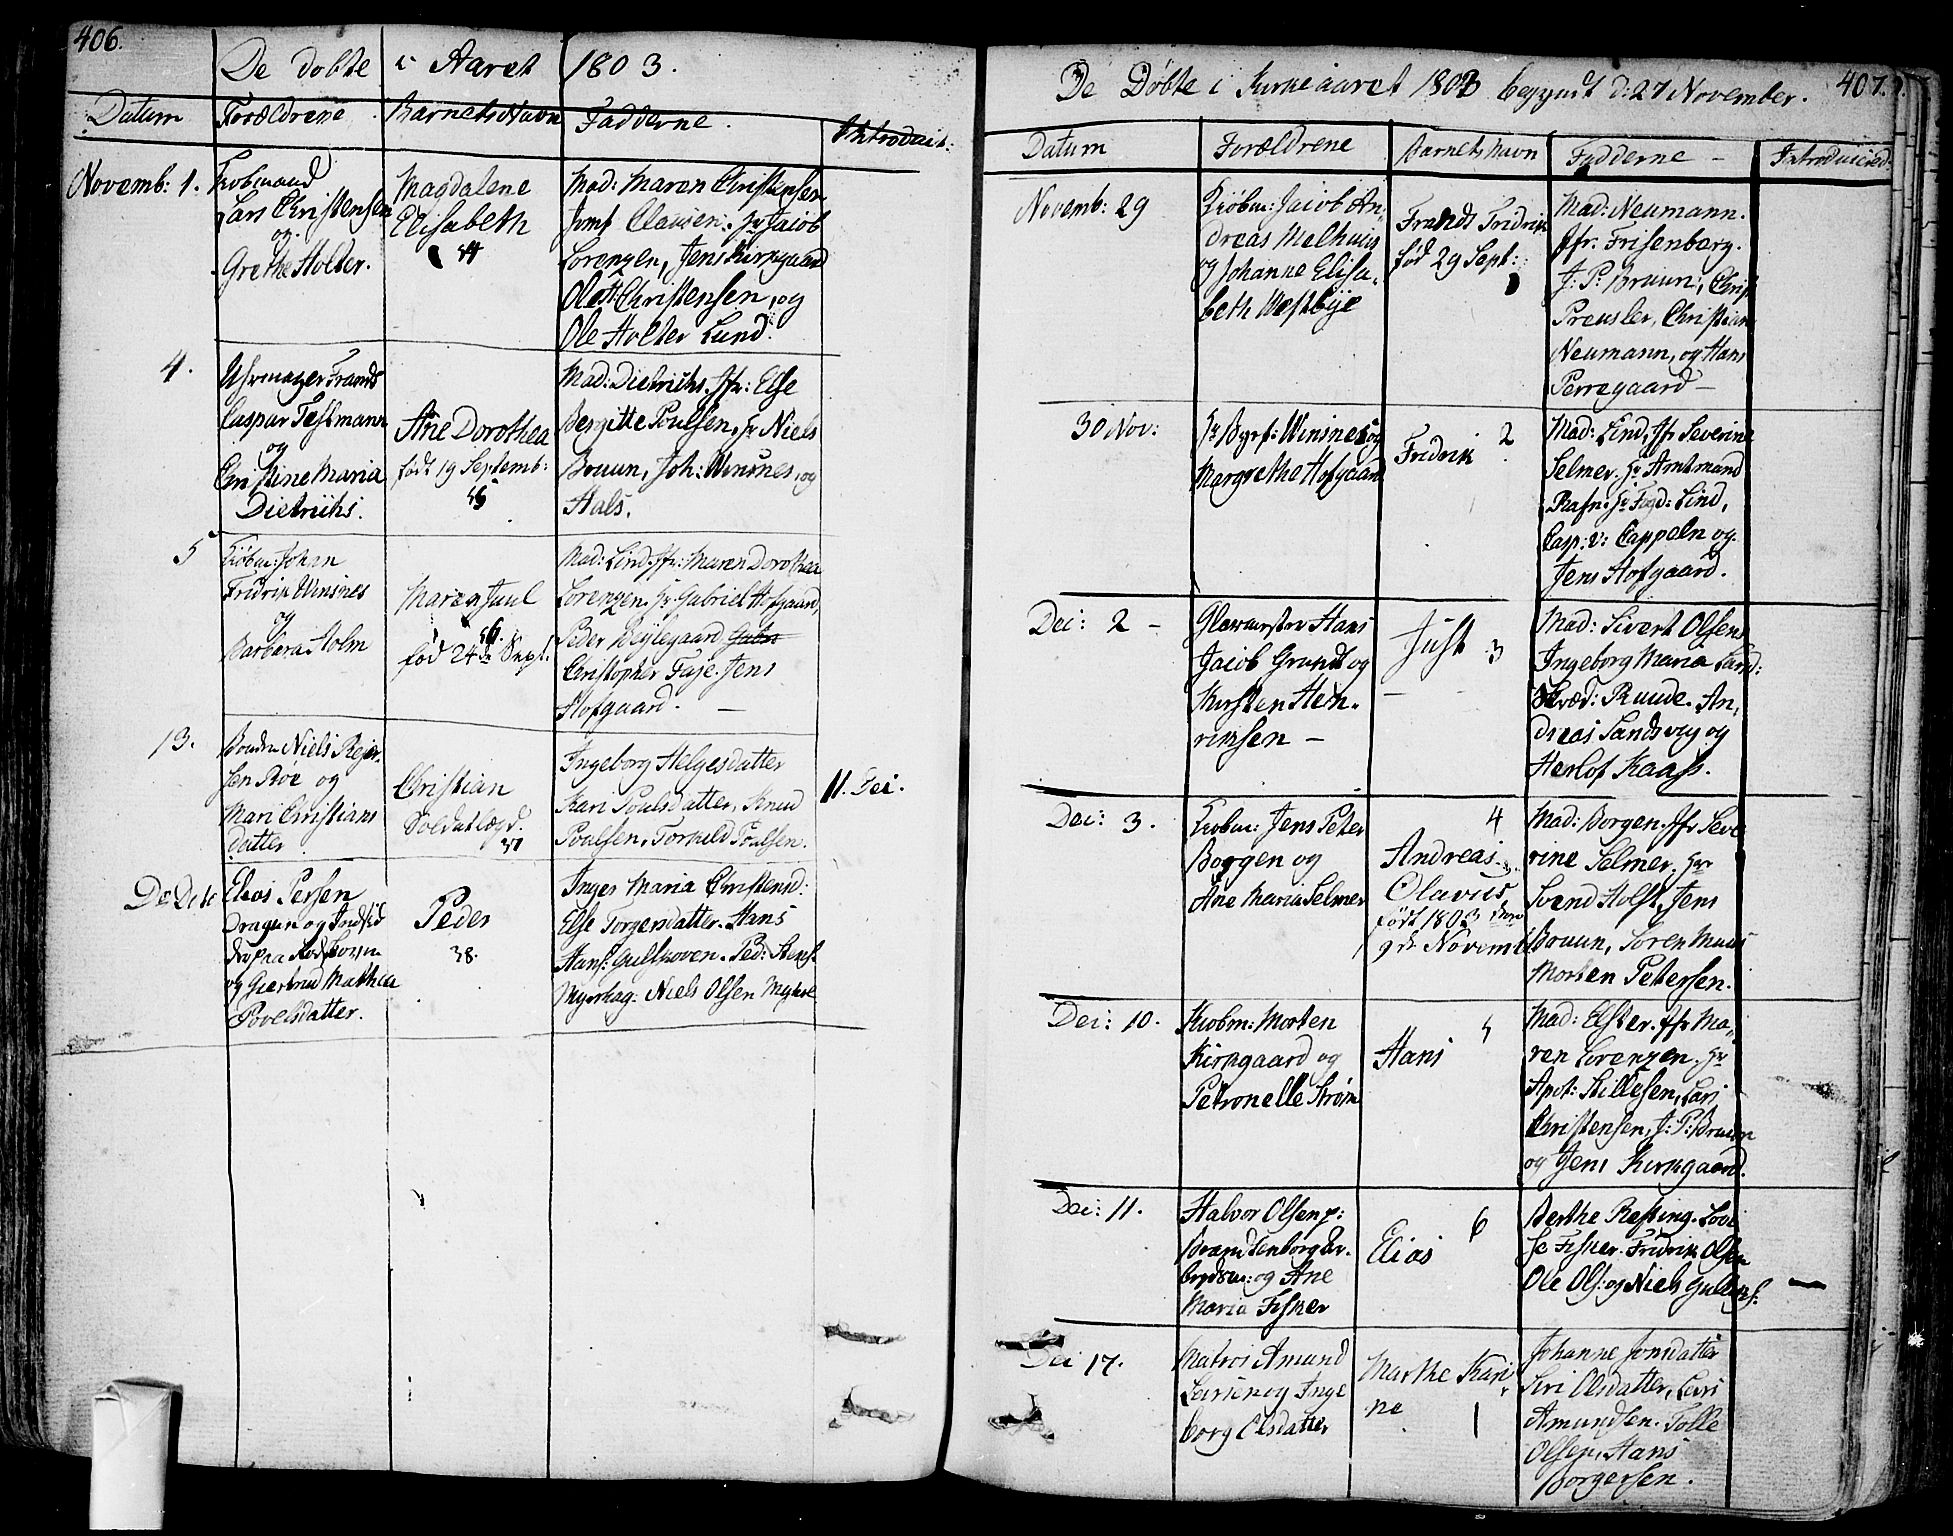 406.
De døbte i Aaret 1803.
Datum Forældrene Barnets Navn Fadderne. Introduci:
Novemb: 1.
Kobmand
Lars Christensen
og
Grethe Holter.
Magdalene
Elisabeth
44
Mad: Maren Christensen
Jomf Clausen. Hr Jacob
Lorenzen, Jens Kirkgaard
Ole Christensen, og
Ole Holter Lund.
4.
Uhrmager Frands
Caspar Testmann
og
Christine Maria
Dietrichs.
Ane Dorothea
født 19 Septemb:
45
Mad: Dietrichs. Jfr: Else
Bergitte Poulsen, Hr Niels
Bruun, Joh: Winsnes, og
Hals.
5
Kiøbm: Johan
Fridrik Winsnes
og
Barbara Holm
Maren Juul
46.
fød 24de Sept.
Mad: Lind. Jfr: Maren Dorothea
Lorenzen. Hr Gabriel Hofgaard,
Peder Bøylegaard
Christopher Faje. Jens
Hofgaard. —
13.
Bonden Niels Rejer-
sen Roe og
Mari Christians
datter
Christian
Soldatlægd.
37
Ingeborg Helgesdatter
Kari Poulsdatter, Knud
Poulsen, Torkeld Poulsen.
11. Dec.
De Dito
Elias Persen
Dragun og Indsid
og Giertrud Mathea
Povelsdatter.
Peder
38.
Inger Maria Christensd:
Else Torgersdatter. Hans
Hans: Gulskoven. Ped:
Niels Olsen
407.
De Døbte i Kirke aaret 1803 begyndt d: 27 November.
Datum Forældrene Barnets Navn Fadderne — Introducered
Novemb: 29
Kiøbm: Jacob An-
dreas Melhuus
og Johanne Elisa-
beth Westbye
Frands Fridrik
fød 29 Sept:
Mad: Neumann.
Jfr. Frisenberg.
J: P: Bruun, Chris
Preusler, Christian
Neumann, og Hans
Perregaard —
30 Nov:
Hr Byef: Winsnes og
Margrethe Hofgaard
Fridrik 2
Mad: Lind, Jfr Severine
Selmer, Hr Amtmand
Rafn: Hr Fogd: Lind,
Casp: v: Cappeln og
Jens Hofgaard.
Dec: 2 —
Glarmester Hans
Jacob Grundt og
Kirsten Hen-
riksen —
Just 3
Mad: Sivert Olsens
Ingeborg Maria Lard:
Skræd: Ruude. An-
dreas Sandsveg og
Herlof Kaass.
Dec: 3.
Kiobm: Jens Peter
Borgen og
Ane Maria Selmer
4
Andreas
Olavus,
født 1803 den
9de Novemb
Mad: Borgen. Jfr Seve
rine Selmer. Hr
Svend Holst, Jens
Bruun, Soren Muus
Morten Petersen.
Dec: 10.
Kiobm: Morten
Kirkgaard og
Petronelle Strøm
5
Hans
Mad: Elster. Jfr Ma-
ren Lorenzen. Hr
Apot: Stillesen, Lars
Christensen, J: P: Bruun
og Jens Kirkgaard.
Dec: 11.
Halvor Olsen p:
Brandtenborg Ar-
beidsm: og Ane
Maria Fisker
Elias 6
Berthe Resting. Lovi
se Fisker. Fridrik Olsen
Ole Ols: og Niels Gulbrns:
—
Dec 17.
Matros Amund
Larsen og Inge
borg Olsdatter
Marthe Kari
ne 1
Johanne Jonsdatter
Siri Olsdatter, Lars
Amundsen. Tolle
Olsen, Hans
Borgersen.